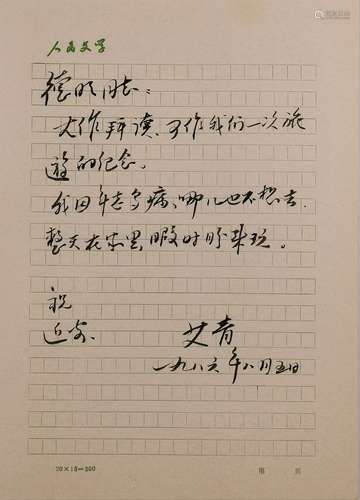 人民文学
德明同志：
大作拜读，可作我们一次旅
游的纪念。
我因年老多病，哪儿也不想去，
整天在家里，暇时盼来玩。
祝
近安。
艾青
一九八六年八月五日
20×15=300
第 页